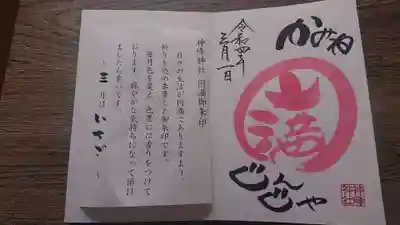 かみね
円満
じんじゃ
神峰神社
令和四年
三月一日
神峰神社 円満御朱印
日々の生活が円満でありますよう、
祈りを込め奉製した御朱印です。
毎月色を変え、色墨には香りをつけて
おります。穏やかな気持ちになって頂け
ましたら幸いです。
~ 三 月は いちご ~